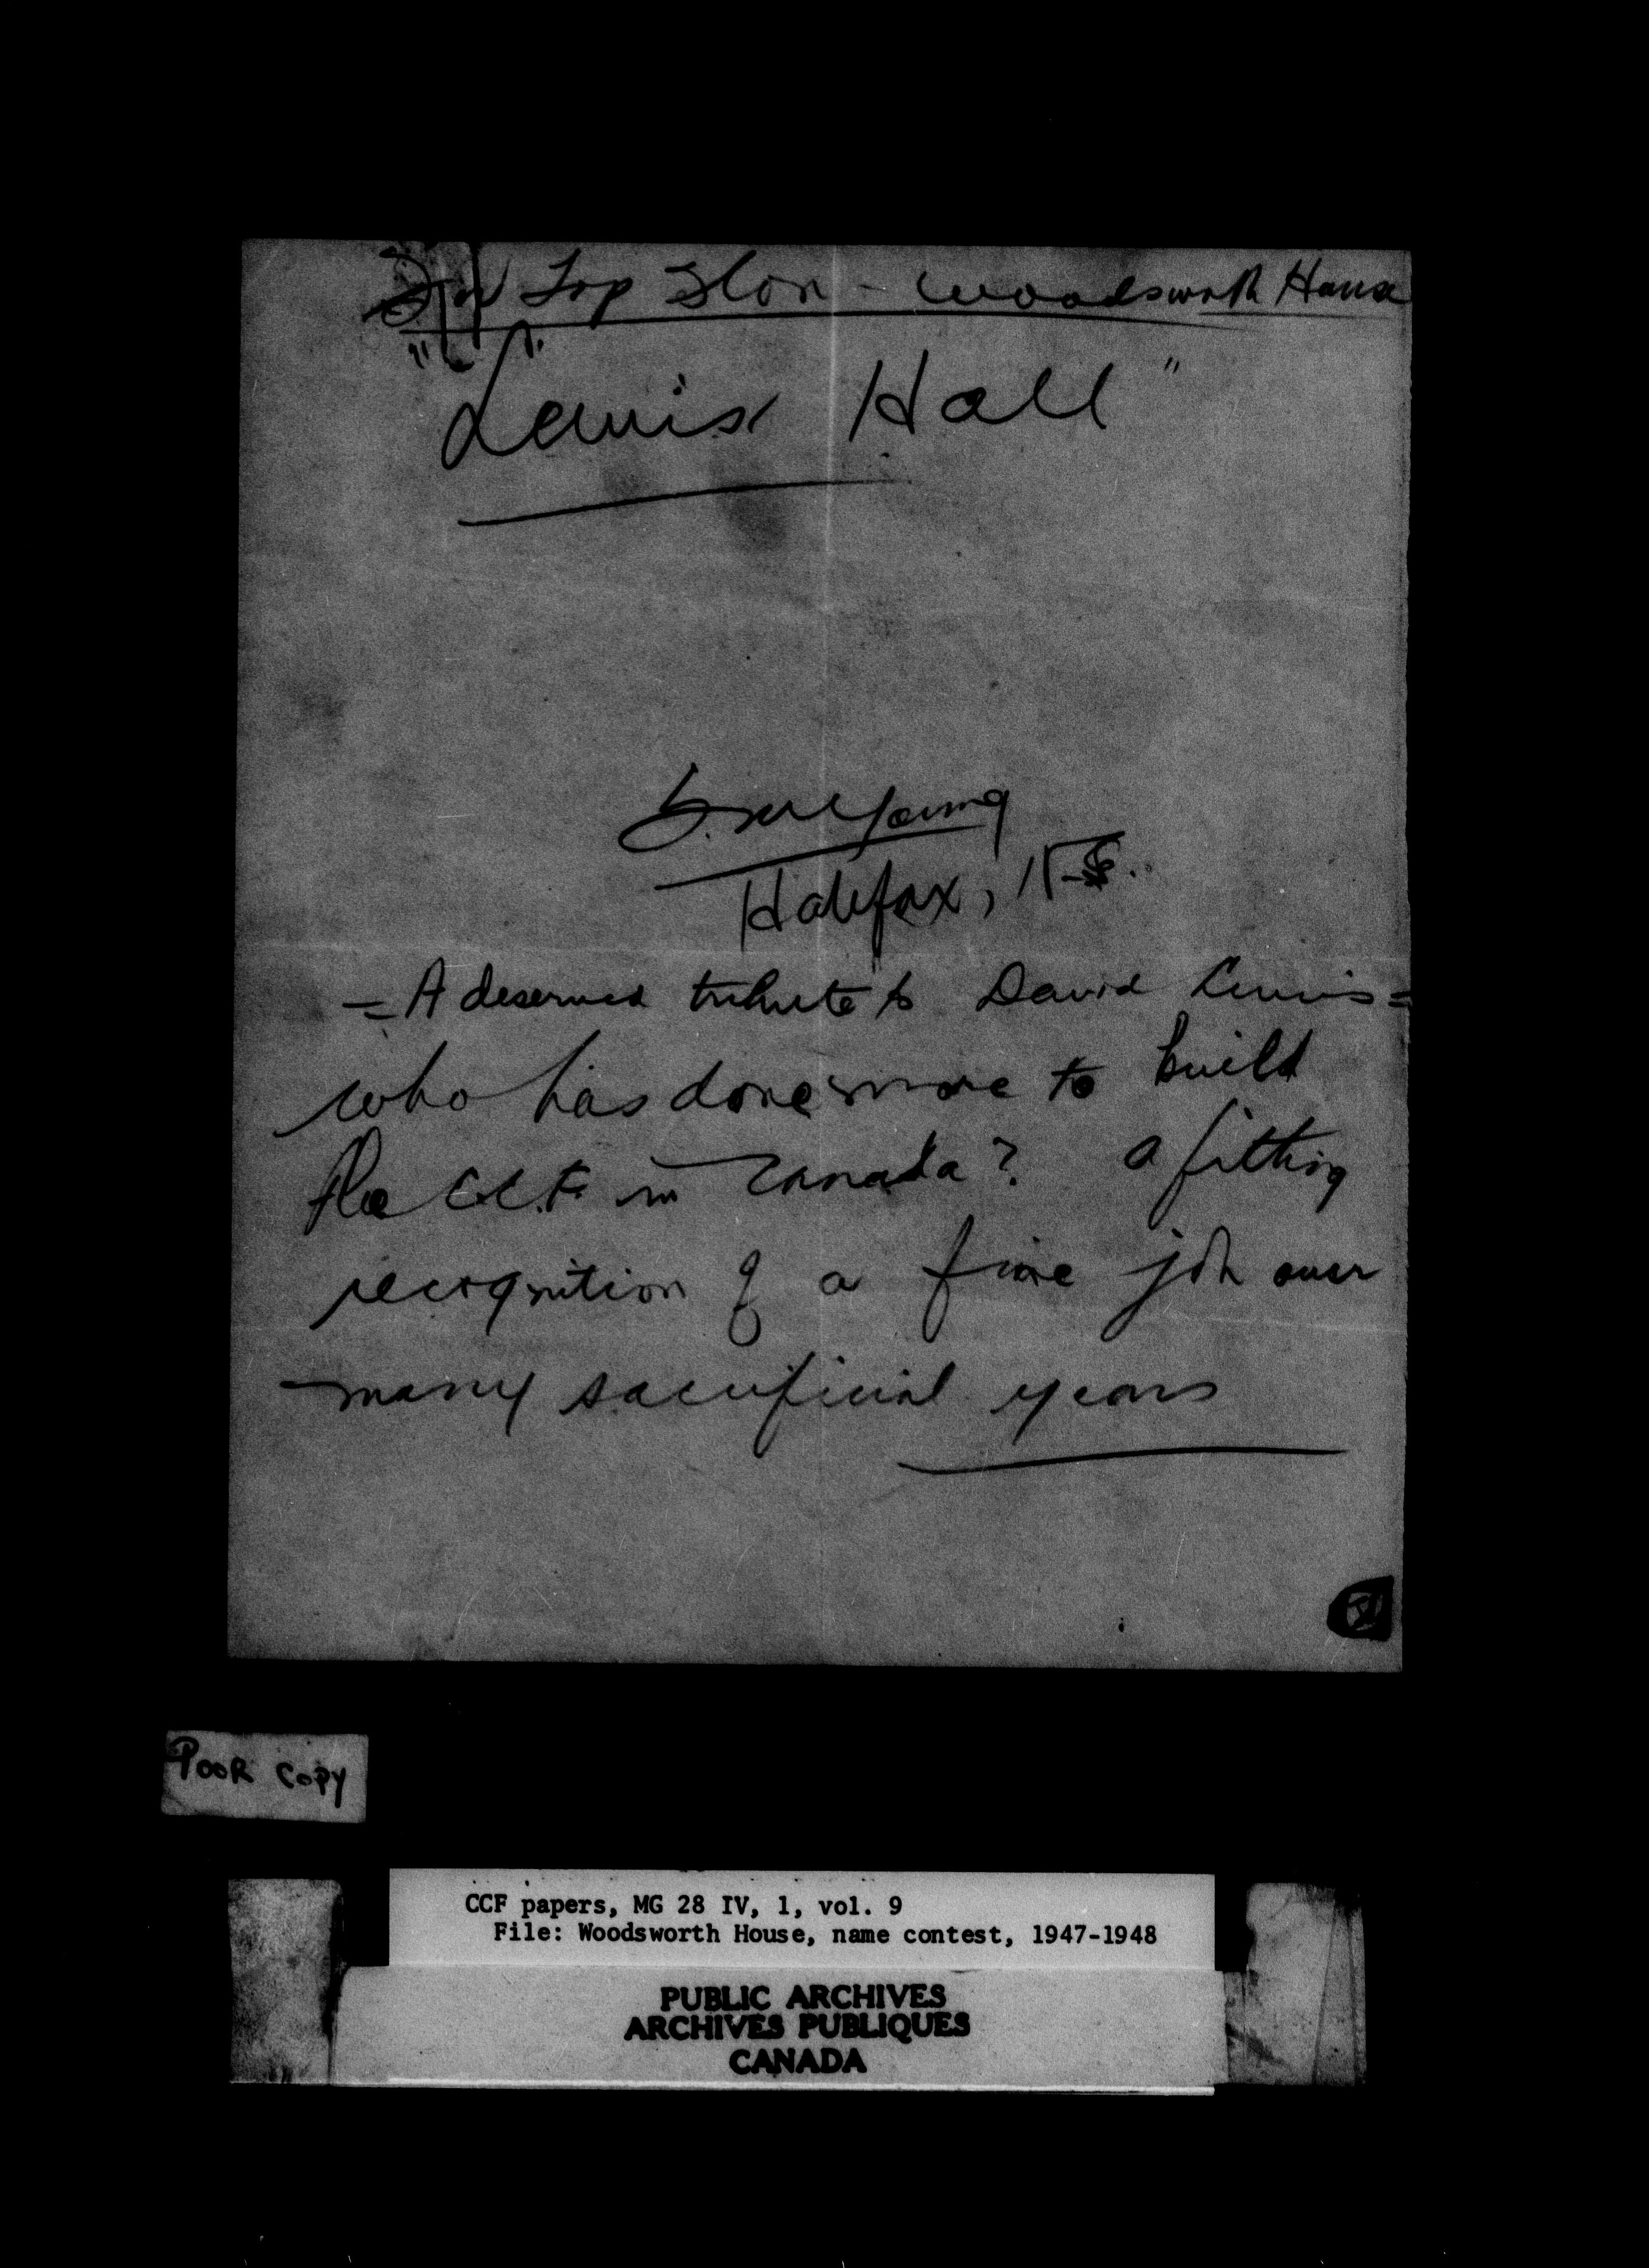 Top Floor - Woodsworth House
"Lewis Hall"
Young
Halifax, N.S.
= A deserved tribute to David Lewis =
who has done more to build
the C.C.F. in Canada? A fitting
recognition of a fine job over
many sacrificial years
POOR COPY
CCF papers, MG 28 IV, 1, vol. 9
File: Woodsworth House, name contest, 1947-1948
PUBLIC ARCHIVES
ARCHIVES PUBLIQUES
CANADA